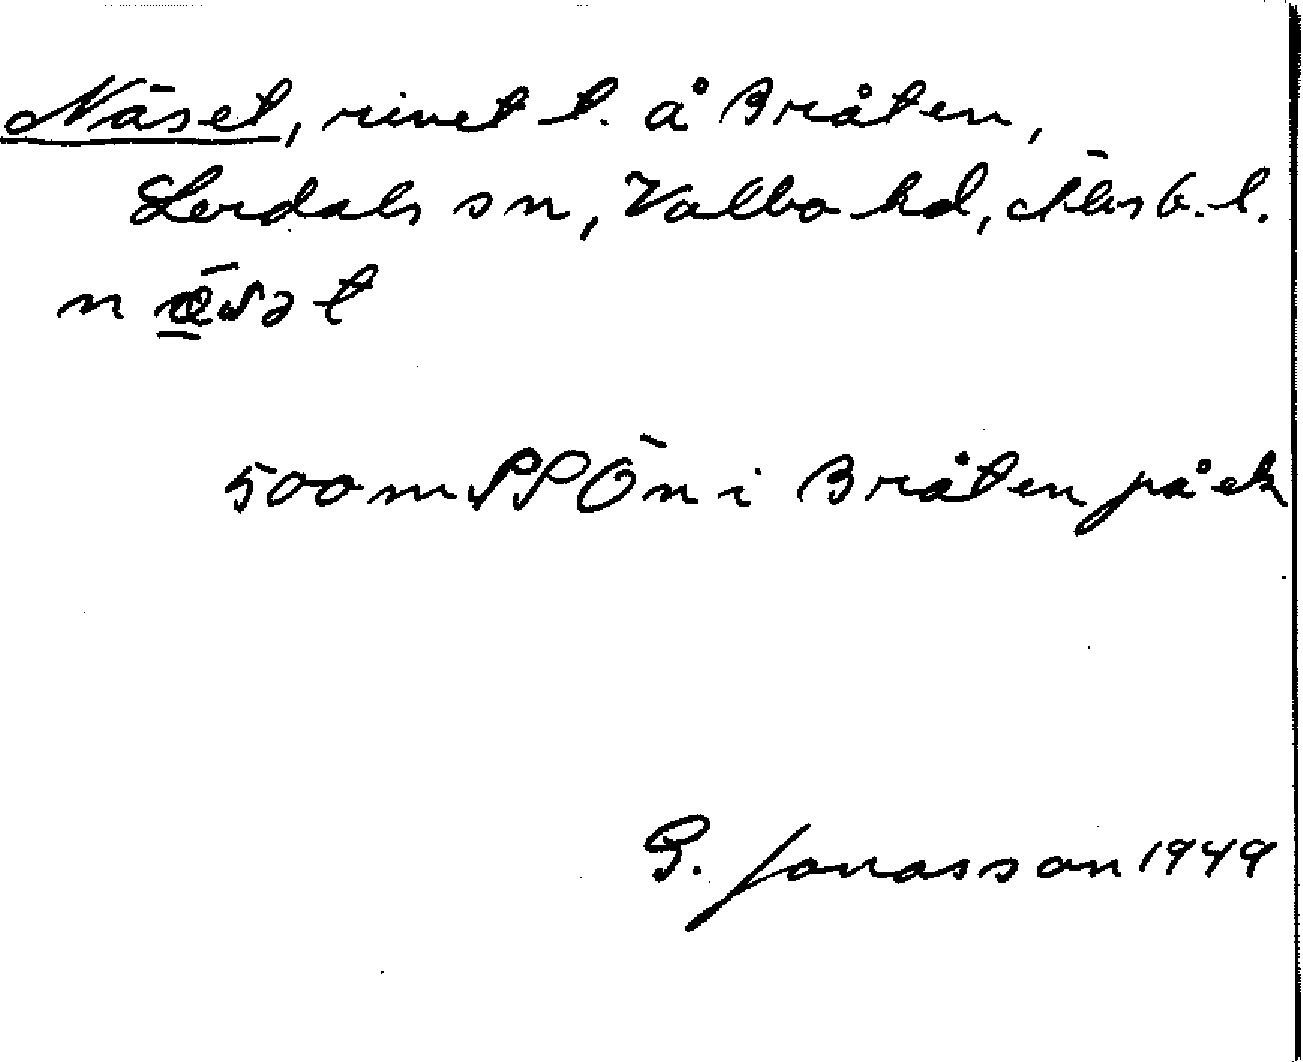 Näset, rivet t. å Bråten,
Lerdals sn, Valbo hd, Älvsb. l.
nǣ̲sət
500 m SSÖ n i Bråten på ek
G. Jonasson 1949